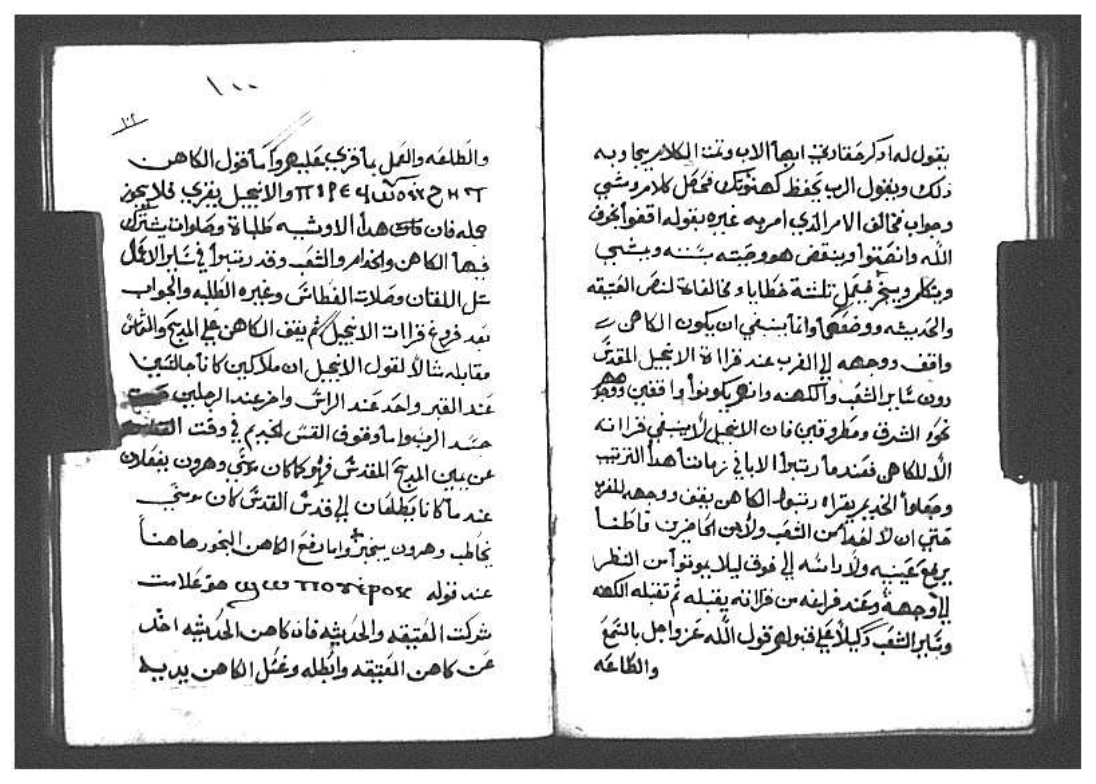 يقول له اذكر خقارتي ايها الاب وتمت الكلام يجاوبه
ذلك ويقول الرب يحفظ كهنوتك فحصل كلام ومشي
وجواب فخالف الامر الذي امر به غيره بقوله اقفوا بخوف
الله وانصتوا وينقض هو وصيته بسنته ويمشي
ويتكلم ويبخر فيعمل ثلثة خطايا ومخالفاة لنص العتيقه
والحديثه ووضعها وانما ينبغي ان يكون الكاهن
واقف ووجهه الي الغرب عند قرااة الانجيل المقدس
دون ساير الشعب والكهنه وانهم يكونوا واقفين ووجوههم
نحو الشرق ومطروقين فان الانجيل لا ينبغي قراانه
الا للكاهن فعندما رتبوا الابا في زماننا هذا الترتيب
وجعلوا الخديم يقراه رتبوا الكاهن يقف ووجهه للغرب
حتي ان لا احدا من الشعب ولا من الحاضرين قاطنا
يرفع عينيه ولا راسه الي فوق ليلا يموتوا من النظر
الي وجهه وعند فراغه من قراانه يقبله ثم تقبله الكهنه
وساير الشعب دليلا علي قبولهم قول الله عز وجل بالسمع
والطاعه
١٠٠
والطاعه والعمل بما قري عليهم واما قول الكاهن
والانجيل يقري فلا يجوز
جمله فان هذا الاوشيه طلباة وصلوات يشترك
فيها الكاهن والخدام والشعب وقد رتبوا في ساير الاعمال
مثل اللقان وصلات الغطاس وغيره الطلبه والجواب
بعد فروغ قراات الانجيل ثم يقف الكاهن علي المدبح والشماس
مقابله مثالا لقول الانجيل ان ملاكين كانا جالسين
عند القبر واحد عند الراس واخر عند الرجلين
جسد الرب واما وقوف القس الخديم في وقت
عن يمين المدبح المقدس فهو كما كان موسي وهرون يفعلان
عند ما كانا يطلعان الي قدس القدس كان موسي
يخاطب وهرون يبخر واما رفع الكاهن البخور هاهنا
عند قوله هو علامت
شركت العتيقه والحديثه فان كاهن الحديثه اخد
عن كاهن العتيقه وابطله وغسل الكاهن يديه